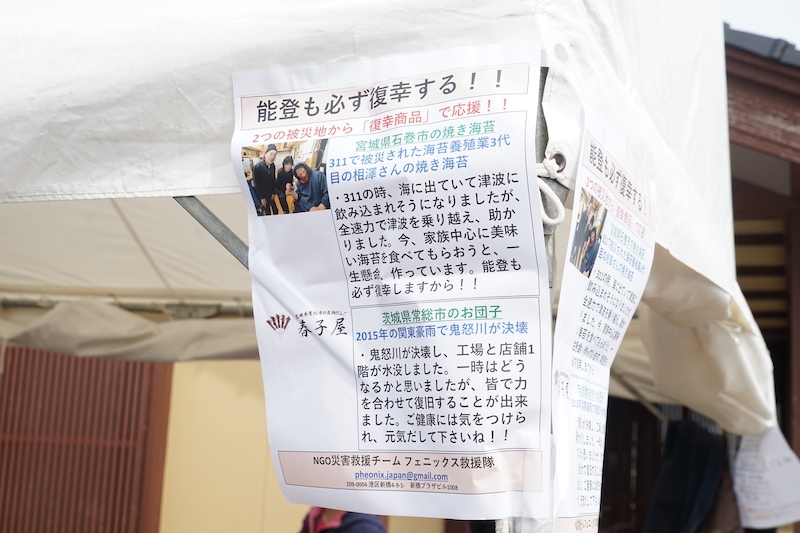 能登も必ず復幸する！！
2つの被災地から「復幸商品」で応援！！
宮城県石巻市の焼き海苔
311で被災された海苔養殖業3代
目の相澤さんの焼き海苔
・311の時、海に出ていて津波に
飲み込まれそうになりましたが、
全速力で津波を乗り越え、助か
りました。今、家族中心に美味
い海苔を食べてもらおうと、一
生懸命、作っています。能登も
必ず復幸しますから！！
春子屋
茨城県常総市のお団子
2015年の関東豪雨で鬼怒川が決壊
・鬼怒川が決壊し、工場と店舗1
階が水没しました。一時はどう
なるかと思いましたが、皆で力
を合わせて復旧することが出来
ました。ご健康には気をつけら
れ、元気だして下さいね！！
NGO災害救援チーム フェニックス救援隊
pheonix.japan@gmail.com
109-0004 港区新橋4-9-1- 新橋プラザビル1008
能登も必ず復幸する！！